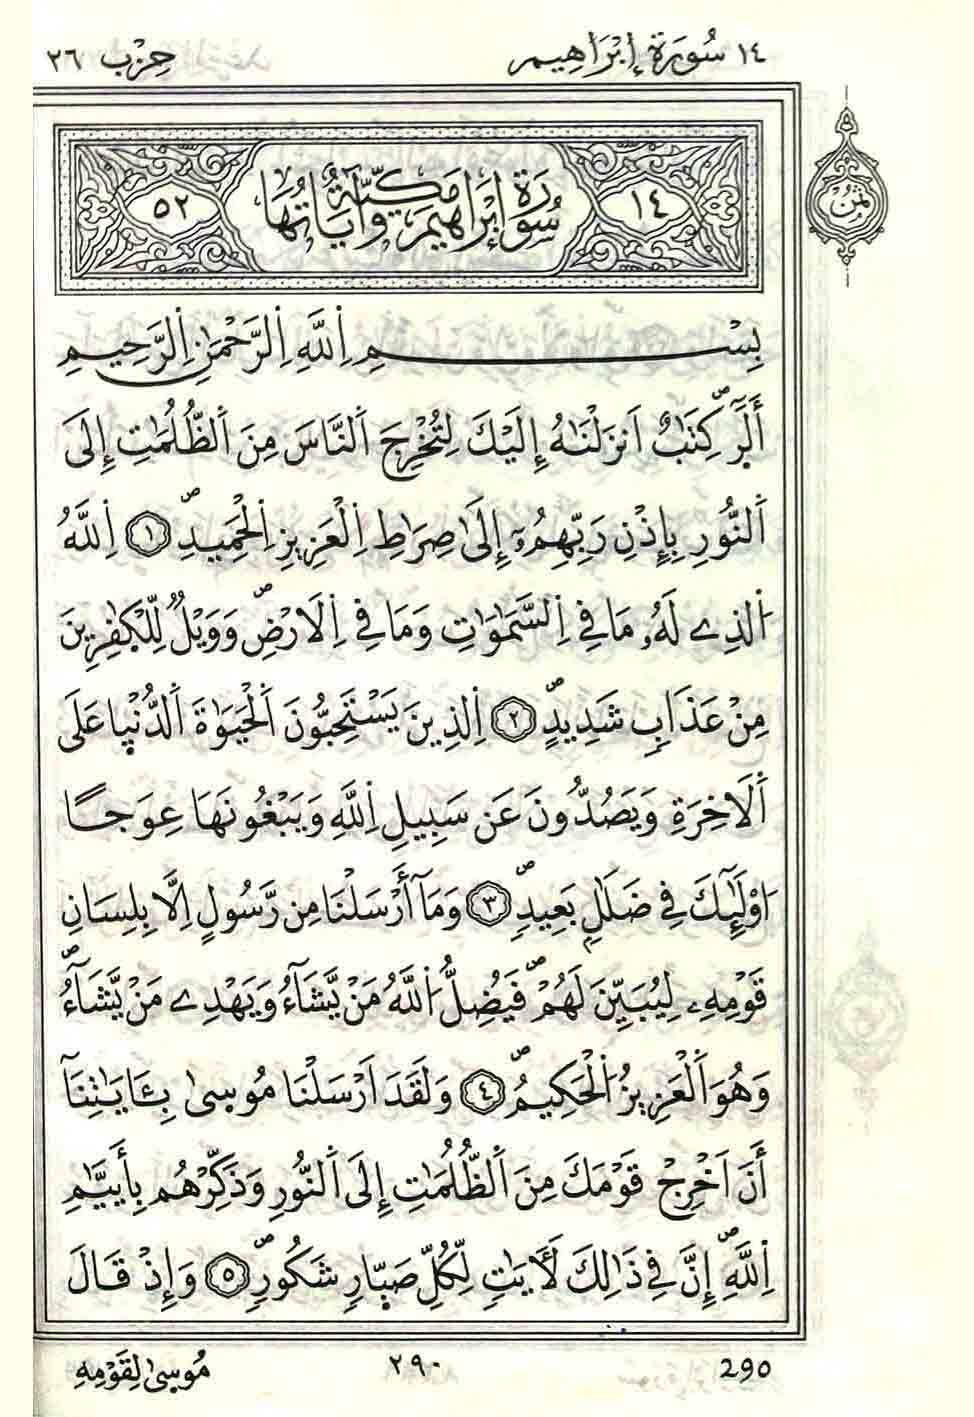 ١٤ سُورَةُ إِبْرَاهِيم حِزْب ٢٦
ثُمُن
١٤ سُورَةُ إِبْرَاهِيمَ مَكِّيَّةٌ وَآيَاتُهَا ٥٢
بِسْمِ اِ۬للَّهِ اِ۬لرَّحْمَٰنِ اِ۬لرَّحِيمِ
أَلَٓرۖ كِتَٰبٌ اَنزَلْنَٰهُ إِلَيْكَ لِتُخْرِجَ اَ۬لنَّاسَ مِنَ اَ۬لظُّلُمَٰتِ إِلَى
اَ۬لنُّورِ بِإِذْنِ رَبِّهِمُۥٓ إِلَىٰ صِرَٰطِ اِ۬لْعَزِيزِ اِ۬لْحَمِيدِۖ ١ اِ۬للَّهُ
اُ۬لذِے لَهُۥ مَا فِے اِ۬لسَّمَٰوَٰتِ وَمَا فِے اِ۬لَارْضِۖ وَوَيْلٌ لِّلْكَٰفِرِينَ
مِنْ عَذَابٍ شَدِيدٍۖ ٢ اِ۬لذِينَ يَسْتَحِبُّونَ اَ۬لْحَيَوٰةَ اَ۬لدُّنْي۪ا عَلَى
اَ۬لَاخِرَةِ وَيَصُدُّونَ عَن سَبِيلِ اِ۬للَّهِ وَيَبْغُونَهَا عِوَجاً
اُوْلَٰٓئِكَ فِے ضَلَٰلِۢ بَعِيدٍۖ ٣ وَمَآ أَرْسَلْنَا مِن رَّسُولٍ اِلَّا بِلِسَانِ
قَوْمِهِۦ لِيُبَيِّنَ لَهُمْۖ فَيُضِلُّ اُ۬للَّهُ مَنْ يَّشَآءُ وَيَهْدِے مَنْ يَّشَآءُۖ
وَهُوَ اَ۬لْعَزِيزُ اُ۬لْحَكِيمُۖ ٤ وَلَقَدَ اَرْسَلْنَا مُوس۪ىٰ بِـَٔايَٰتِنَآ
أَنَ اَخْرِجْ قَوْمَكَ مِنَ اَ۬لظُّلُمَٰتِ إِلَى اَ۬لنُّورِ وَذَكِّرْهُم بِأَيَّيٰمِ
اِ۬للَّهِۖ إِنَّ فِے ذَٰلِكَ لَأٓيَٰتٍ لِّكُلِّ صَبّ۪ارٍ شَكُورٍۖ ٥ وَإِذْ قَالَ
مُوسَىٰ لِقَوْمِهِ ٢٩٠ 290